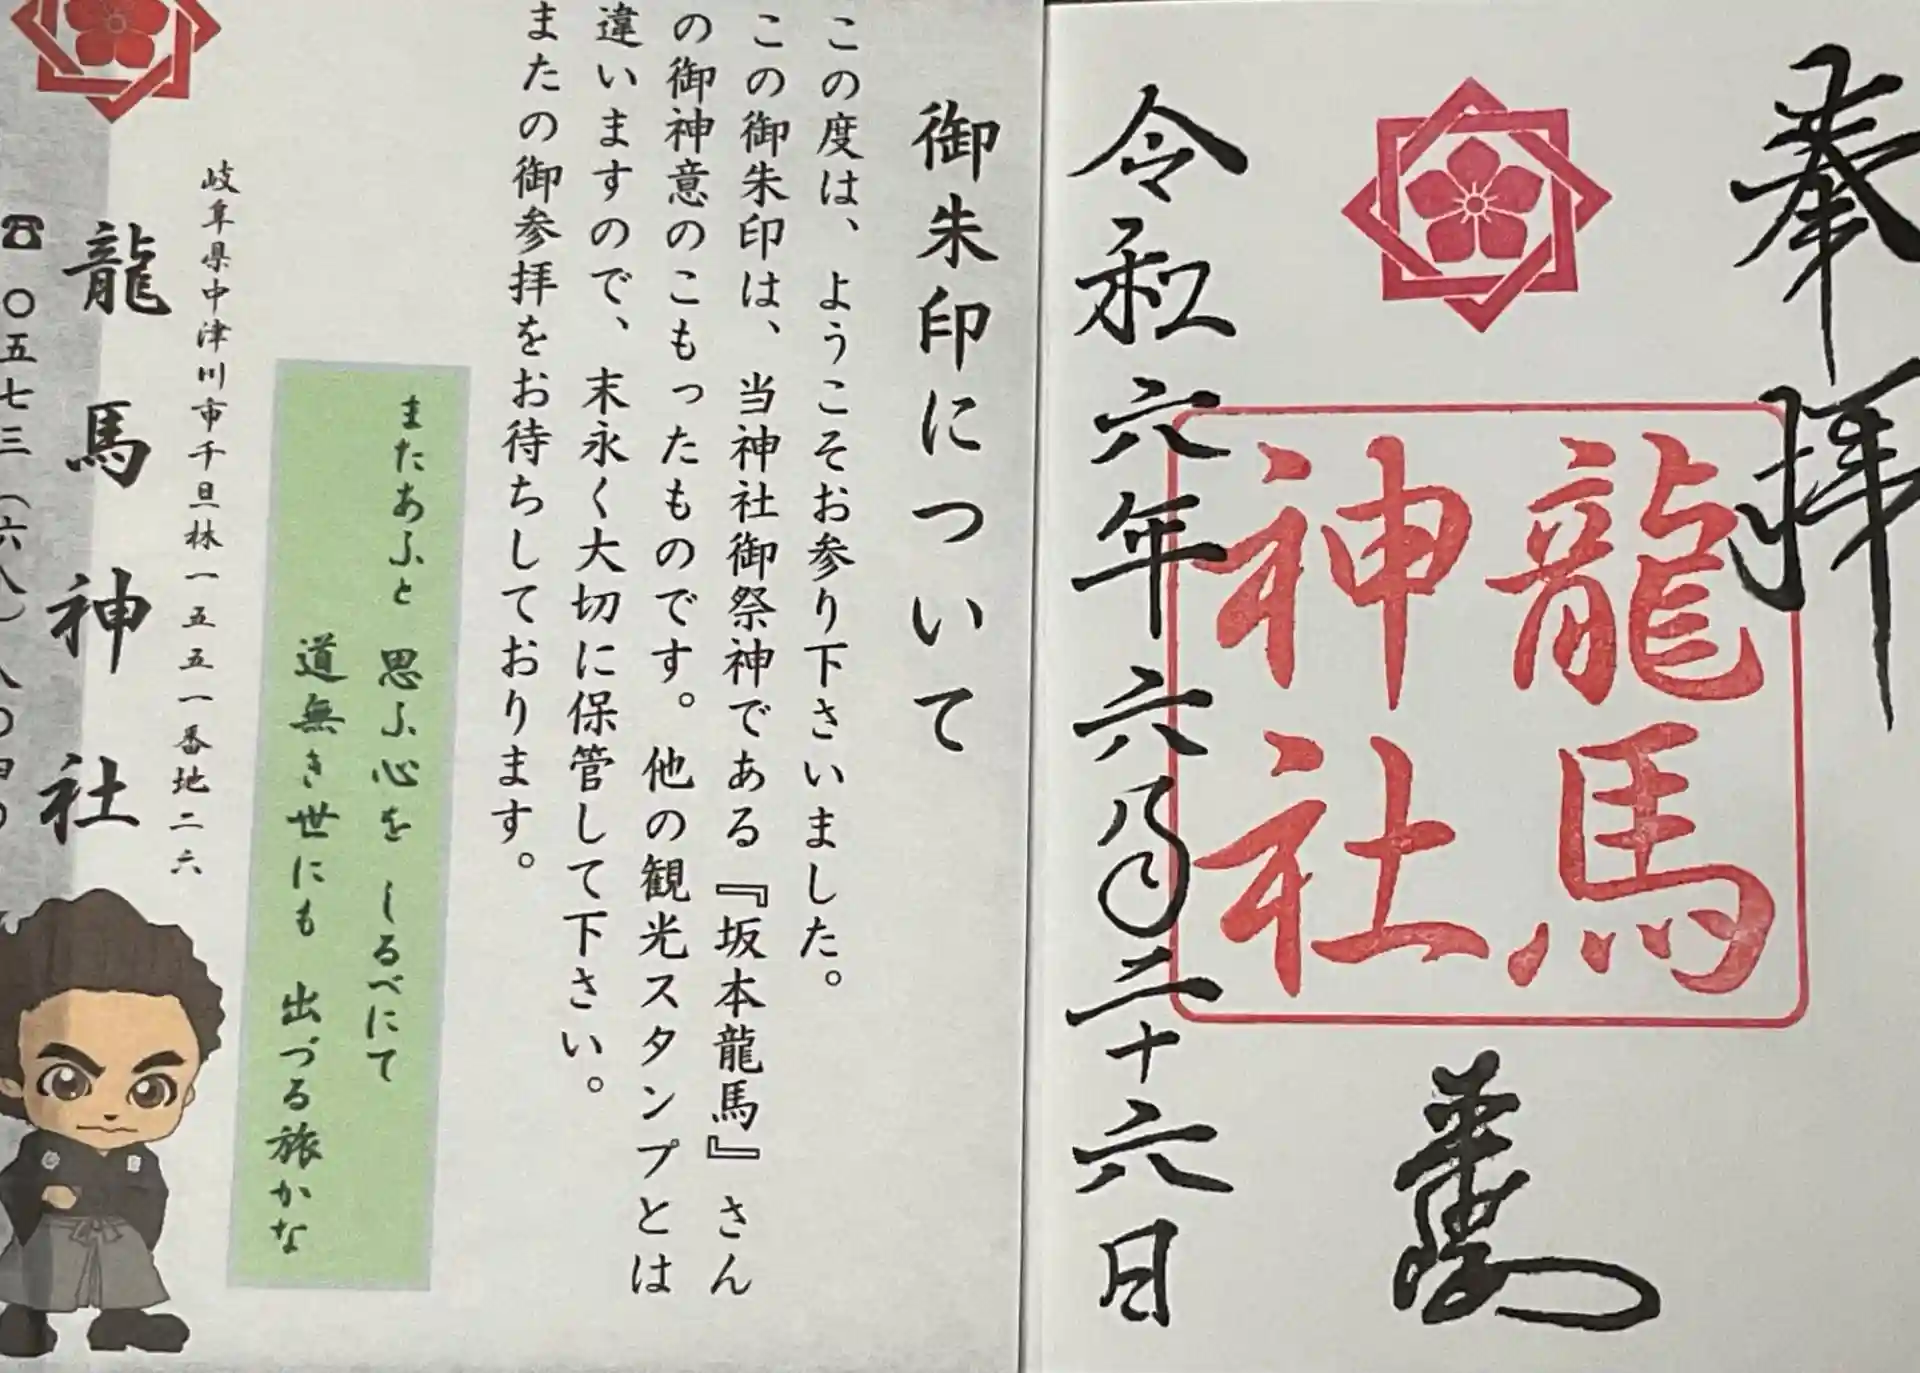 奉拝
龍馬
神社
令和六年六月二十六日
御朱印について
この度は、ようこそお参り下さいました。
この御朱印は、当神社御祭神である『坂本龍馬』さん
の御神意のこもったものです。他の観光スタンプとは
違いますので、末永く大切に保管して下さい。
またの御参拝をお待ちしております。
またあふと 思ふ心を しるべにて
道無き世にも 出づる旅かな
岐阜県中津川市千旦林一五五一番地二六
龍馬神社
☎ 〇五七三(六八)八〇四〇